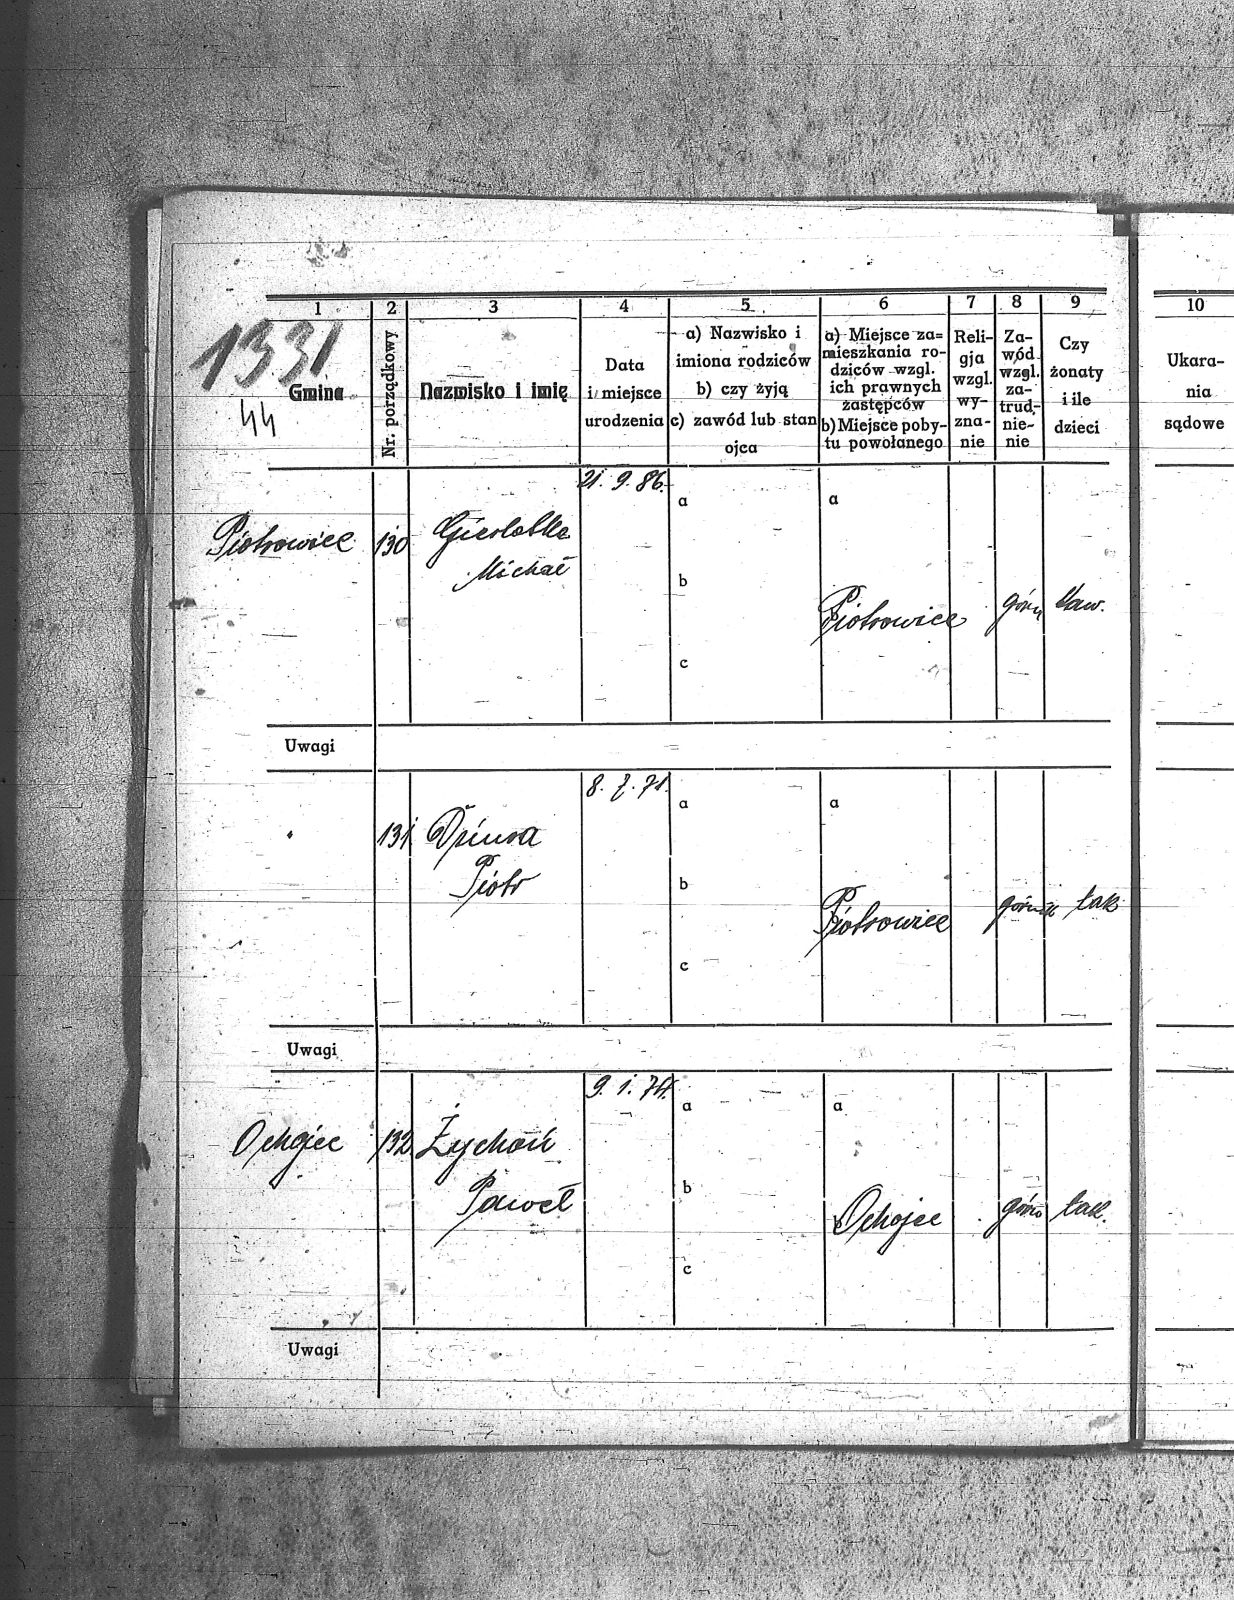 1 2 3 4 5 6 7 8 9 10
1331
44
Gmina
Nr. porządkowy
Nazwisko i imię
Data
i miejsce
urodzenia
a) Nazwisko i
imiona rodziców
b) czy żyją
c) zawód lub stan
ojca
a) Miejsce za=
mieszkania ro-
dziców wzgl.
ich prawnych
zastępców
b) Miejsce poby-
tu powołanego
Reli-
gja
wzgl.
wy-
zna-
nie
Za-
wód
wzgl.
za-
trud-
nie-
nie
Czy
żonaty
i ile
dzieci
Ukara-
nia
sądowe
21. 9. 86.
a a
Piotrowice 130
Michał
b
Piotrowice
c
Uwagi
8. 7. 71.
a a
131 Dziura
Piotr
b
Piotrowice górnik tak
c
Uwagi
9. 1. 74.
a a
Ochojec 132 Żychoń
Paweł
b
Ochojec tak.
c
Uwagi